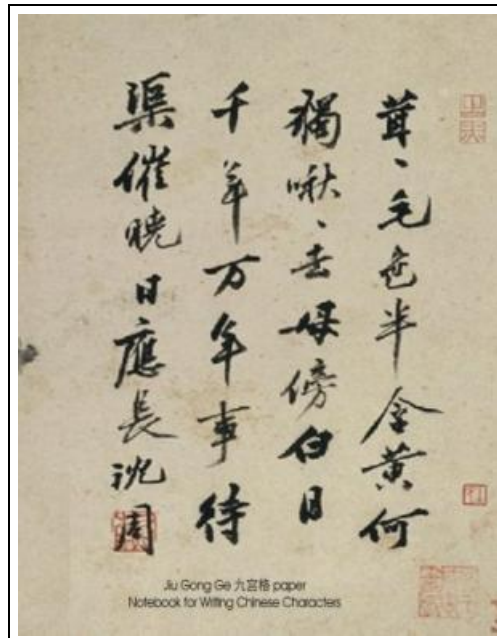 茸〻毛色半含黃何
獨啾〻去母傍白日
千年万年事待
渠催曉日應長沈周
Jiu Gong Ge 九宮格 paper
Notebook for Writing Chinese Characters